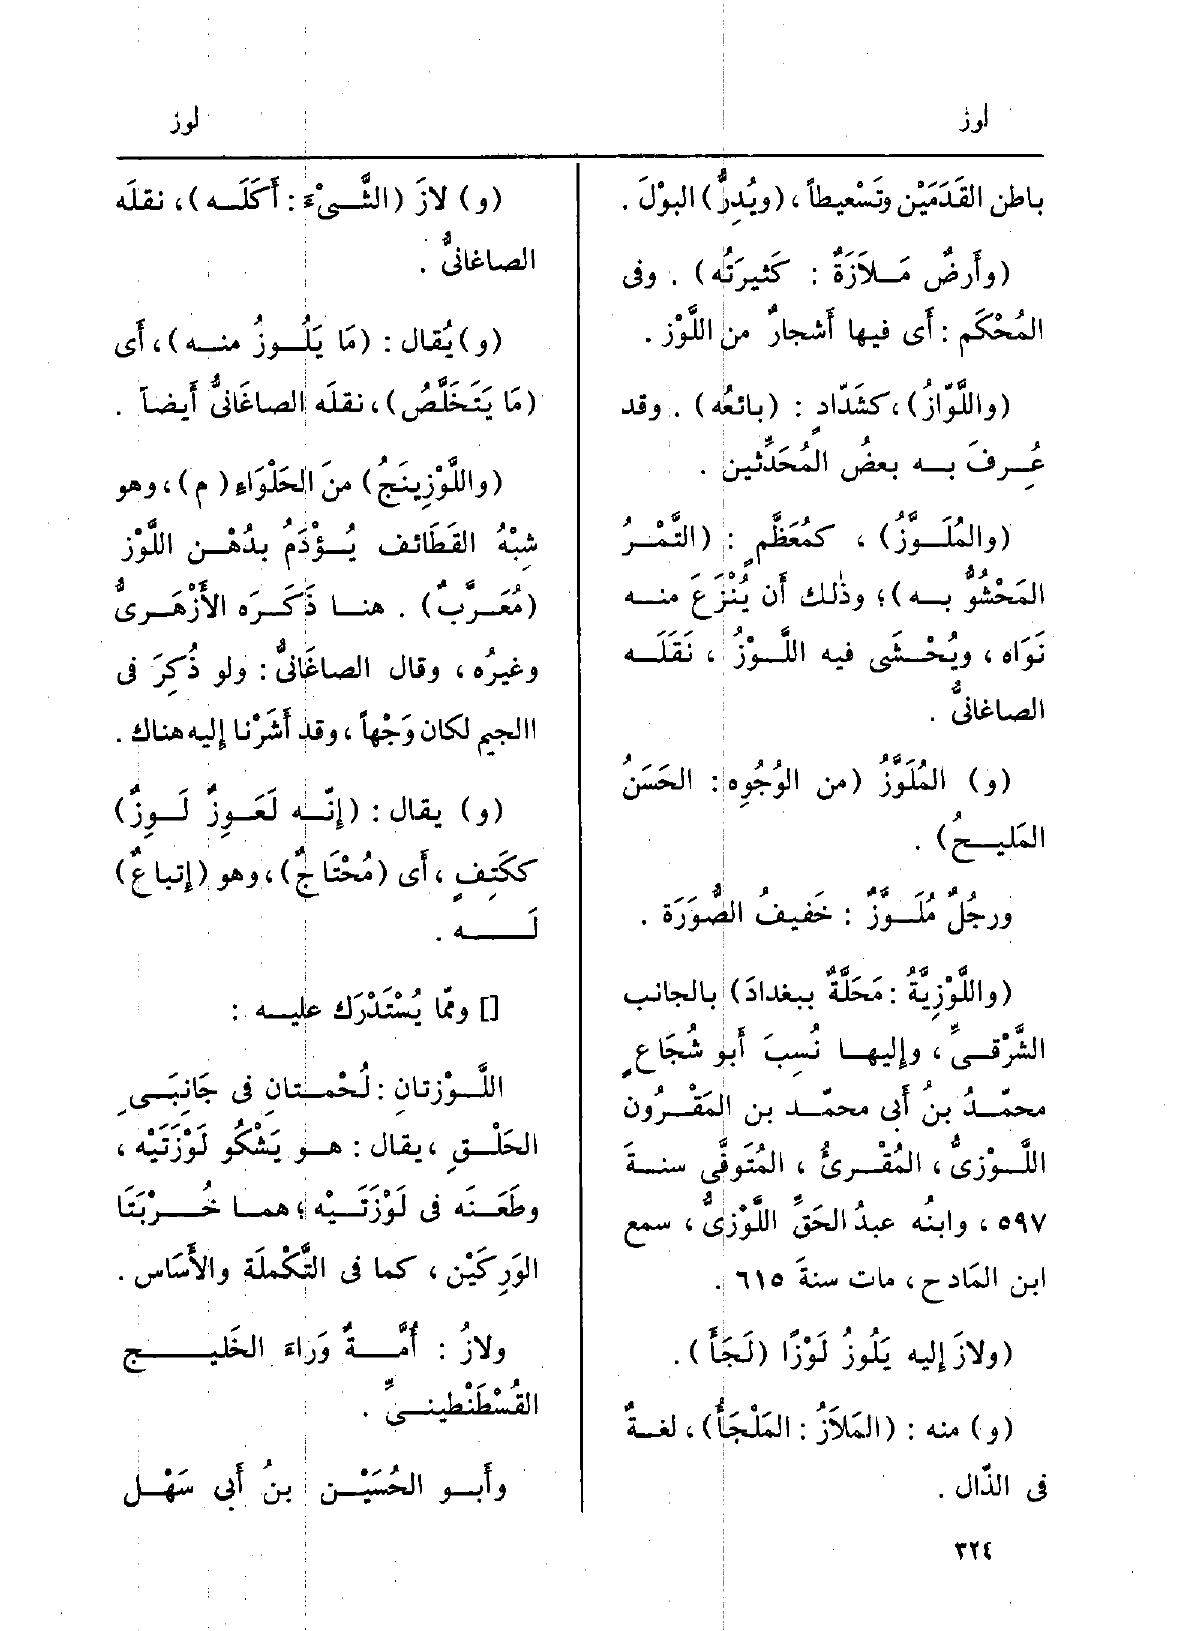 لوز
لوز
باطن القَدَمَيْن وتَسْعيطاً ، (ويُدِرُّ) البوْلَ .
(وأَرضٌ مَـلاَزَةٌ : كَثيرَتُه) . وفى
المُحْكَم : أَى فيها أَشجارٌ من اللَّوْز .
(واللَّوّازُ) ، كشَدّادٍ : (بائعُه) . وقد
عُـرِفَ بـه بعضُ المُحَدِّثين .
(والمُلَـوَّزُ) ، كمُعَظَّمٍ : (التَّمْـرُ
المَحْشُوُّ بـه) ؛ وذٰلك أَن يُنْزَعَ منـه
نَوَاه ، ويُحْـشَى فيه اللَّـوْزُ ، نَقَلَـه
الصاغانىُّ .
(و) المُلَوَّزُ (من الوُجُوِه : الحَسَنُ
المَليـحُ) .
ورجُلٌ مُلَـوَّزٌ : خَفيفُ الصُّورَة .
(واللَّوْزِيَّةُ : مَحَلَّةٌ ببغدادَ) بالجانب
الشَّرْقـىِّ ، وإليهـا نُسِبَ أَبو شُجَاعٍ
محمّـدُ بنُ أَبى محمّـد بن المَقْـرُون
اللَّـوْزىُّ ، المُقْـرئُ ، المُتوفَّى سنـةَ
٥٩٧ ، وابنُه عبدُ الحَقِّ اللَّوْزىُّ ، سمع
ابن المَادح ، مات سنةَ ٦١٥ .
(ولازَ إليه يَلُوزُ لَوْزًا (لَجَأَ) .
(و) منه : (المَلاَزُ : المَلْجَأُ) ، لغـةٌ
فى الذّال .
(و) لازَ (الشَّـىْءَ : أَكَلَـه) ، نقلَه
الصاغانىُّ .
(و) يُقال : (مَا يَلُـوزُ منـه) ، أَى
(مَا يَتَخَلَّصُ) ، نقلَه الصاغَانىُّ أَيضاً .
(واللَّوْزِينَجُ) منَ الحَلْوَاءِ (م) ، وهو
شِبْهُ القَطَائف يُـؤْدَمُ بدُهْـن اللَّوْز
(مُعَـرَّبٌ) . هنـا ذَكَـرَه الأَزْهَـرىُّ
وغيرُه ، وقال الصاغَانىُّ : ولو ذُكِرَ فى
االجيم لكان وَجْهاً ، وقد أَشَرْنا إليه هناك .
(و) يقال : (إنّـه لَعَوِزٌ لَـوِزٌ)
ككَتِفٍ ، أَى (مُحْتَاجٌ) ، وهو (إتباعٌ)
لَـه .
[] وممّا يُسْتَدْرَك عليـه :
اللَّـوْزتانِ : لُحْمـتانِ فى جَانِبَـىِ
الحَلْـقِ ، يقال : هـو يَشْكُو لَوْزَتَيْه ،
وطَعَـنَه فى لَوْزَتَـيْه ، همـا خُـرْبَتَا
الوَرِكَيْن ، كما فى التَّكْملَة والأَسَاس .
ولازُ : أُمَّـةٌ وَرَاءَ الخَليـج
القُسْطَنْطينـىِّ .
وأَبـو الحُسَيْـن بنُ أَبى سَهْـل
٣٢٤